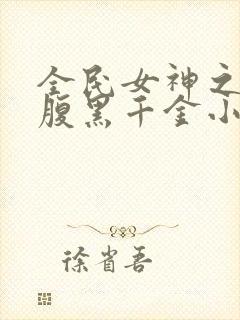 全民女神之
腹黑千金小
徐省吾